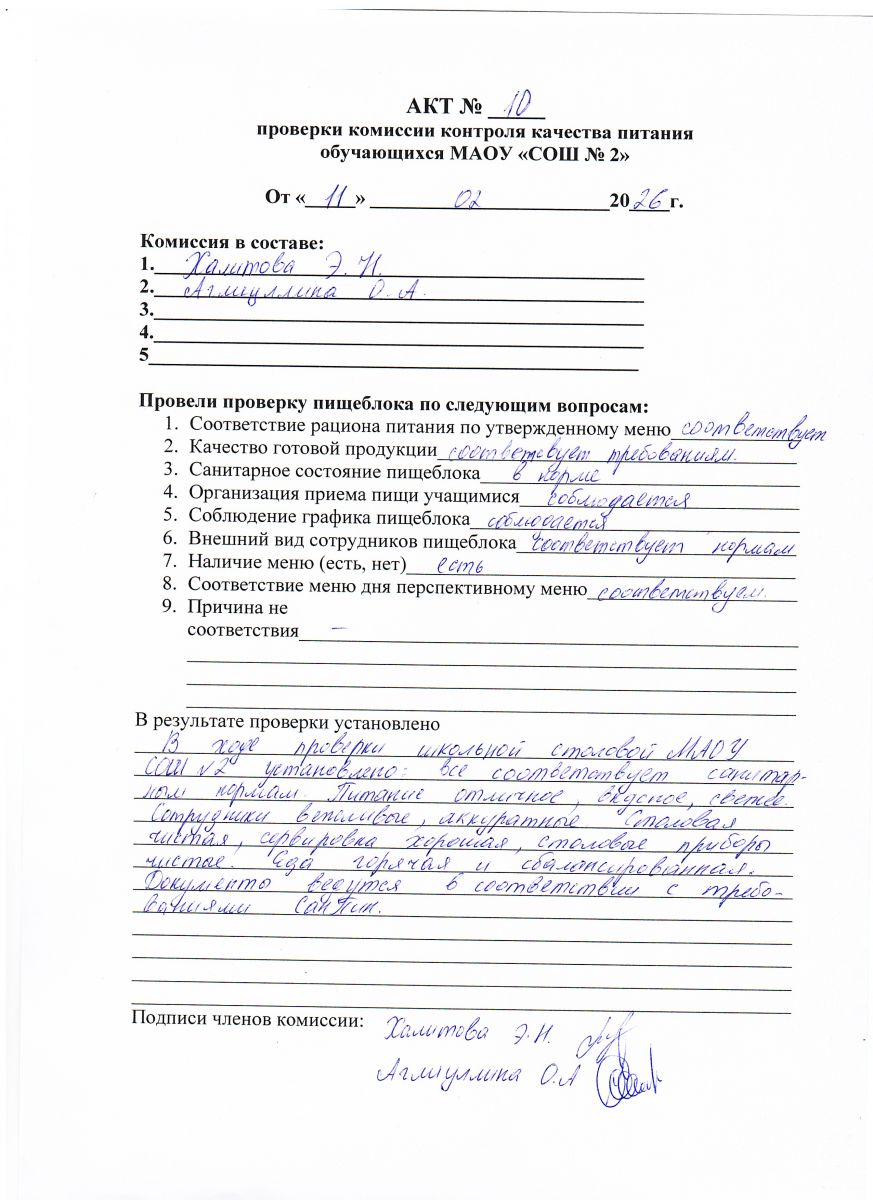 АКТ № 10
проверки комиссии контроля качества питания
обучающихся МАОУ «СОШ № 2»
От «11» 02 2026г.
Комиссия в составе:
1. Халитова Э. Н.
2. Агмиуллина О. А.
3.
4.
5
Провели проверку пищеблока по следующим вопросам:
1. Соответствие рациона питания по утвержденному меню соответствует
2. Качество готовой продукции соответсвует требованиям.
3. Санитарное состояние пищеблока в норме
4. Организация приема пищи учащимися соблюдается
5. Соблюдение графика пищеблока соблюдается
6. Внешний вид сотрудников пищеблока соответствует нормам
7. Наличие меню (есть, нет) есть
8. Соответствие меню дня перспективному меню соответствует.
9. Причина не
соответствия –
В результате проверки установлено
В ходе проверки школьной столовой МАОУ
СОШ №2 установлено: все соответствует санитар-
ным нормам. Питание отличное, вкусное, свежее.
Сотрудники вежливые, аккуратные Столовая
чистая, сервировка хорошая, столовые приборы
чистые. Еда горячая и сбалансированная.
Документы ведутся в соответствии с требо-
ваниями СанПин.
Подписи членов комиссии: Халитова Э.Н.
Агмиуллина О.А